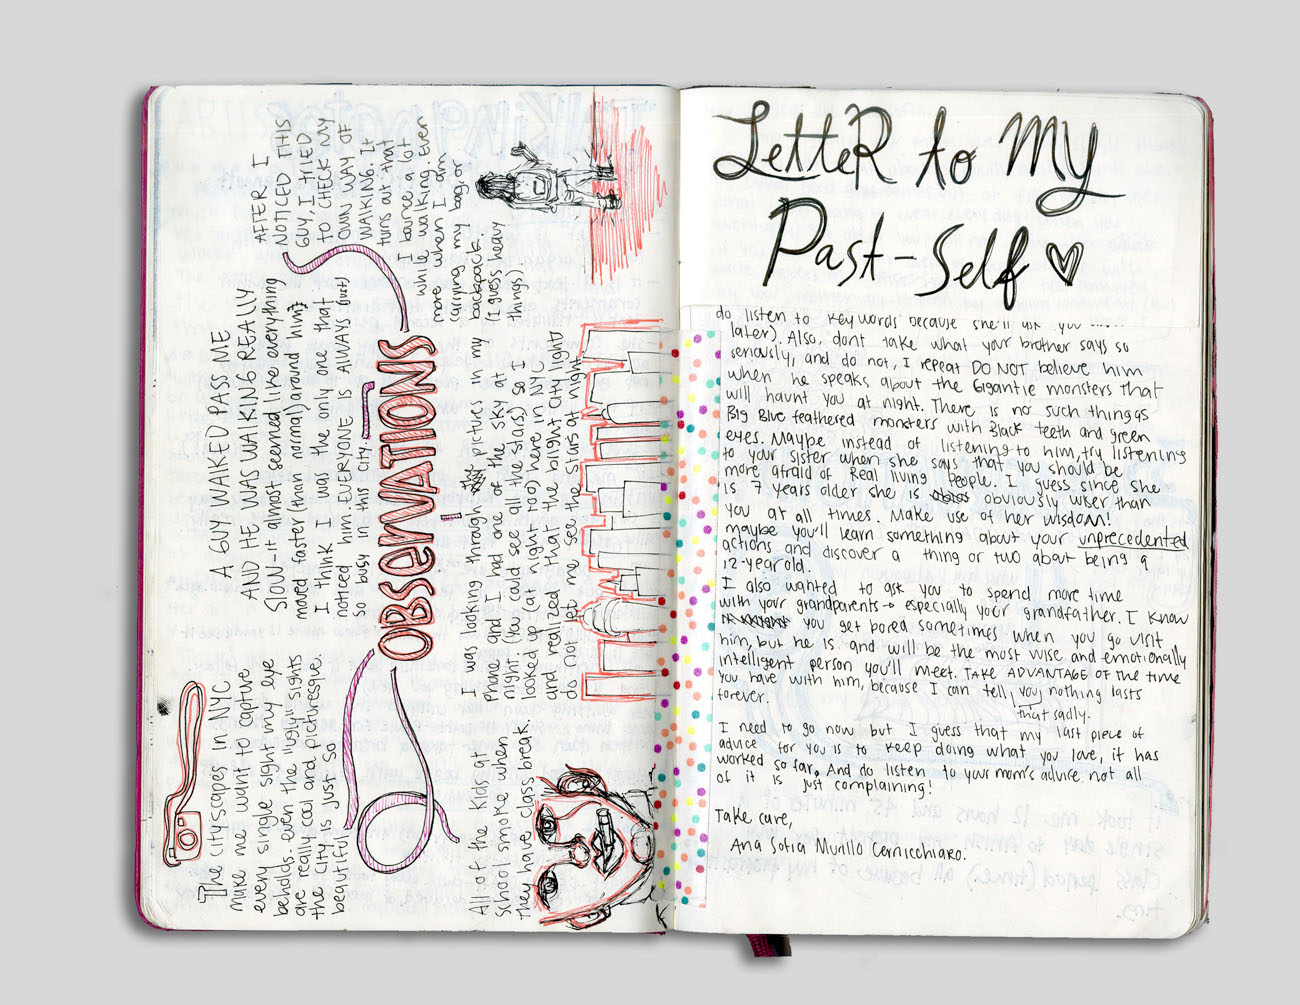 The cityscapes in NYC
make me want to captive
every single sight my eye
beholds. even the "ugly" sights
are really cool and picturesque.
the city is just so
beautiful
A GUY WALKED PASS ME
AND HE WAS WALKING REALLY
SLOW-it almost seemed like everything
moved faster (than normal) around him?
I think I was the only one that
noticed him. EVERYONE IS ALWAYS (just)
so busy in this city.
AFTER I
NOTICED THIS
GUY, I TRIED
TO CHECK MY
OWN WAY OF
WALKING. It
turns at that
I bounce a lot
while walking. Ever
more when I am
carrying my bag or
backpack.
(I guess heavy
things)
OBSERVATIONS
All of the kids at
school smoke when
they have class break.
I was looking through pictures in my
phone and I had one of the sky at
night (you could see all the stars). so I
looked up (at night too) here in NYC
and realized that the bright city lights
do not let me see the stars at night
LetteR to My
Past-Self
do listen to key words because she'll ask you
later). Also, dont take what your brother says so
seriously, and do not, I repeat DO NOT believe him
when he speaks about the gigantic monsters that
will haunt you at night. There is no such things as
Big Blue feathered monsters with Black teeth and green
eyes. Maybe instead of listening to him, try listening
to your sister when she says that you should be
more afraid of Real living people. I guess since she
is 7 years older she is obviously wiser than
you at all times. Make use of her wisdom!
maybe you'll learn something about your unprecedented
actions and discover a thing or two about being a
12-year old.
I also wanted to ask you to spend more time
with your grandparents → especially your grandfather. I know
you get bored sometimes when you go visit
him, but he is and will be the most wise and emotionally
intelligent person you'll meet. TAKE ADVANTAGE of the time
you have with him, because I can tell you nothing lasts
forever.
that sadly.
I need to go now but I guess that my last piece of
advice for you is to keep doing what you love, it has
worked so far. And do listen to your mom's advice, not all
of it is just complaining!
Take care,
Ana Sofia Murillo Cernicchiaro.